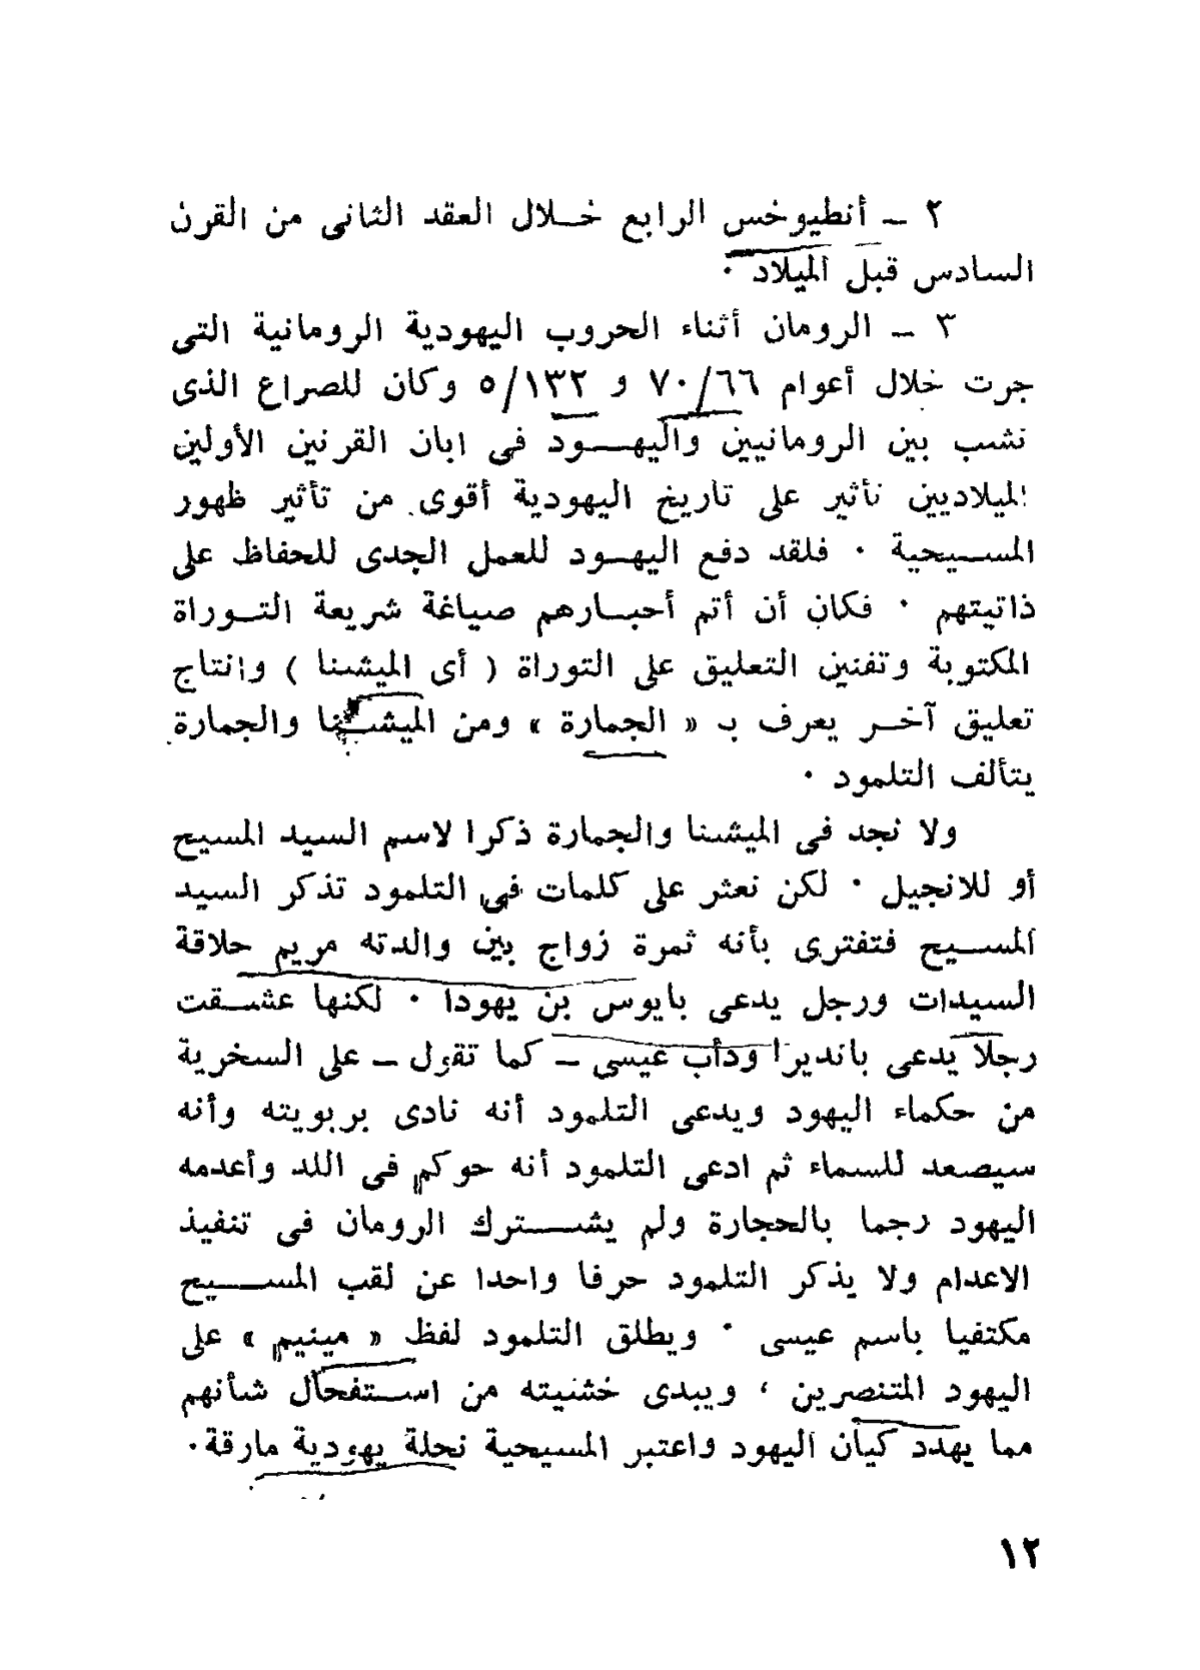 ٢ ـ أنطيوخس الرابع خـلال العقد الثانى من القرن
السادس قبل الميلاد ٠
٣ ـ الرومان أثناء الحروب اليهودية الرومانية التى
جرت خلال أعوام ٧٠/٦٦ و ٥/١٣٢ وكان للصراع الذى
نشب بين الرومانيين واليهـــود فى ابان القرنين الأولين
الميلاديين تأثير على تاريخ اليهودية أقوى من تأثير ظهور
المســيحية ٠ فلقد دفع اليهـود للعمل الجدى للحفاظ على
ذاتيتهم ٠ فكان أن أتم أحبـارهم صياغة شريعة التـوراة
المكتوبة وتفنين التعليق على التوراة ( أى الميشنا ) وانتاج
تعليق آخـر يعرف بـ « الجمارة » ومن الميشـنا والجمارة
يتألف التلمود ٠
ولا نجد فى الميشنا والجمارة ذكرا لاسم السيد المسيح
أو للانجيل ٠ لكن نعثر على كلمات فى التلمود تذكر السيد
المســيح فتفترى بأنه ثمرة زواج بين والدته مريم حلاقة
السيدات ورجل يدعى بايوس بن يهودا ٠ لكنها عشـقت
رجلا يدعى بانديرا ودأب عيسى ـ كما تقول ـ على السخرية
من حكماء اليهود ويدعى التلمود أنه نادى بربويته وأنه
سيصعد للسماء ثم ادعى التلمود أنه حوكم فى اللد وأعدمه
اليهود رجما بالحجارة ولم يشـــترك الرومان فى تنفيذ
الاعدام ولا يذكر التلمود حرفا واحدا عن لقب المســـيح
مكتفيا باسم عيسى ٠ ويطلق التلمود لفظ « مينيم » على
اليهود المتنصرين ، ويبدى خشنيته من اســتفحال شأنهم
مما يهدد كيان اليهود واعتبر المسيحية نحلة يهودية مارقة ٠
١٢